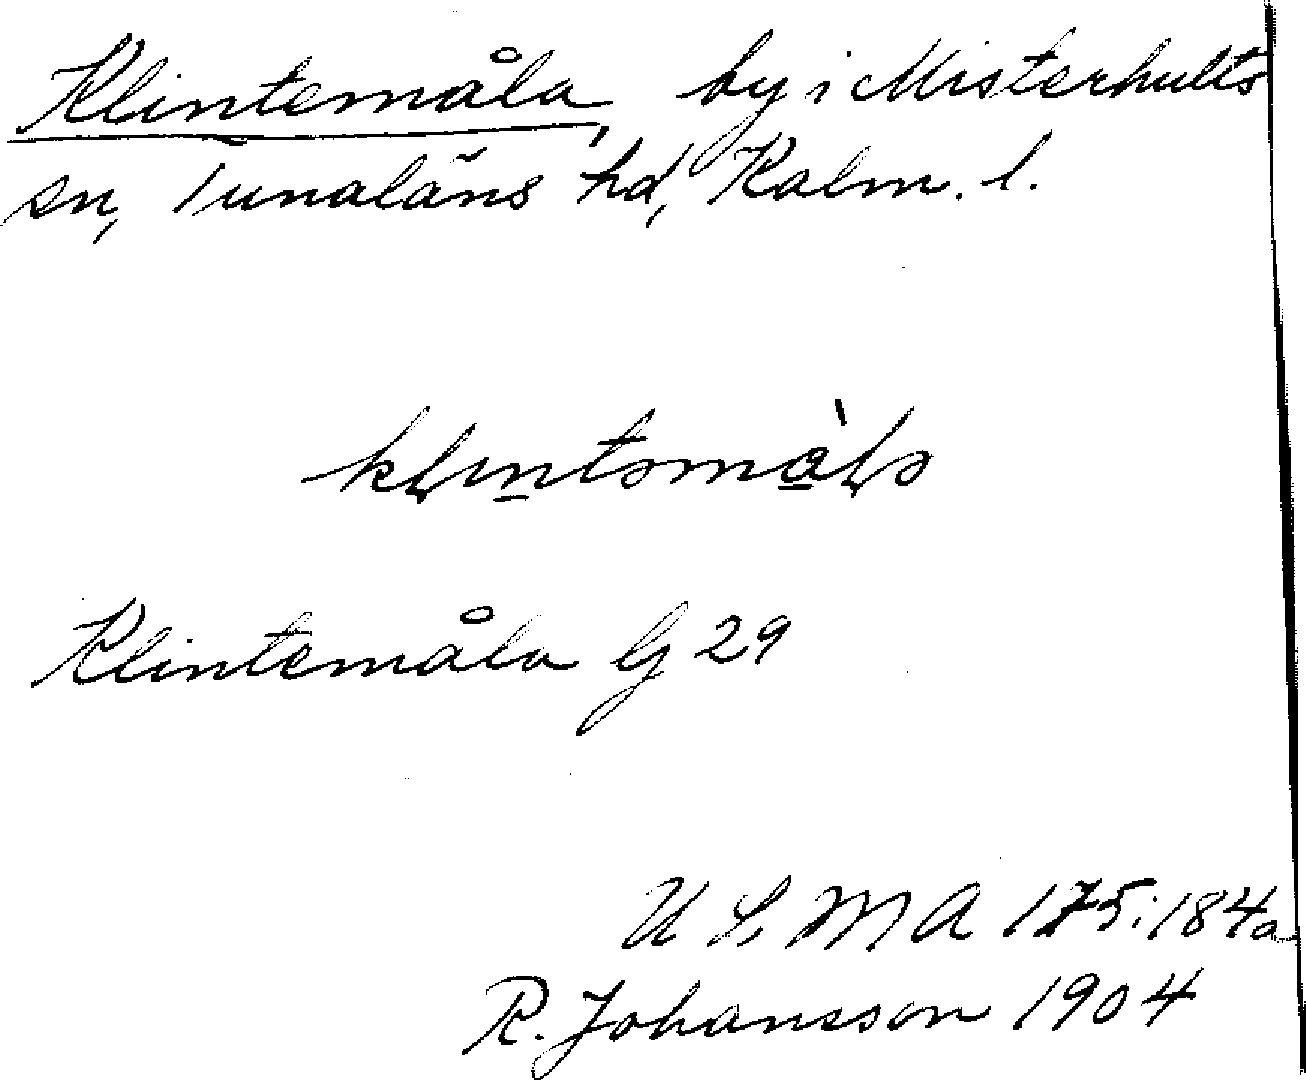 Klintemåla, by i Misterhults
sn, Tunaläns hd, Kalm. l.
Klintemåla G 29
U L, M A 175:184a
R. Johansson 1904